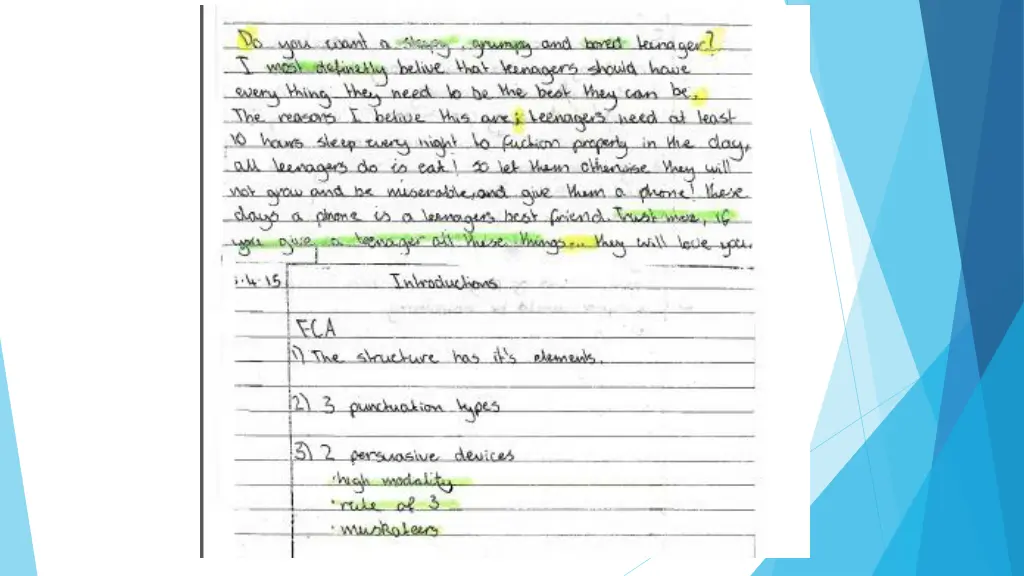 Do you want a sleepy, grumpy and bored teenager?
I most definetly belive that teenagers should have
every thing they need to be the best they can be.
The reasons I belive this are; teenagers need at least
10 hours sleep every night to fuction properly in the day,
all teenagers do is eat! so let them otherwise they will
not grow and be miserable, and give them a phone! these
days a phone is a teenagers best friend. Trust me, if
you give a teenager all these things... they will love you.
1.4.15 Introductions
FCA
1) The structure has it's elements.
2) 3 punctuation types
3) 2 persuasive devices
·high modality
·rule of 3
·muskateers